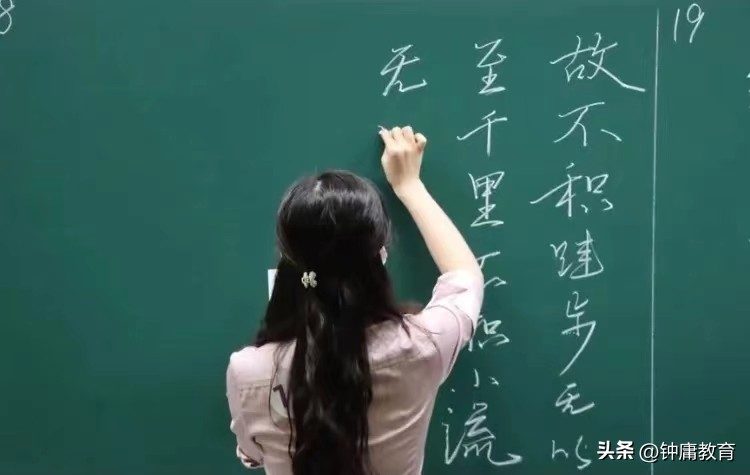 8
19
故不积跬步无以
至千里不积小流
无
头条 @钟庸教育